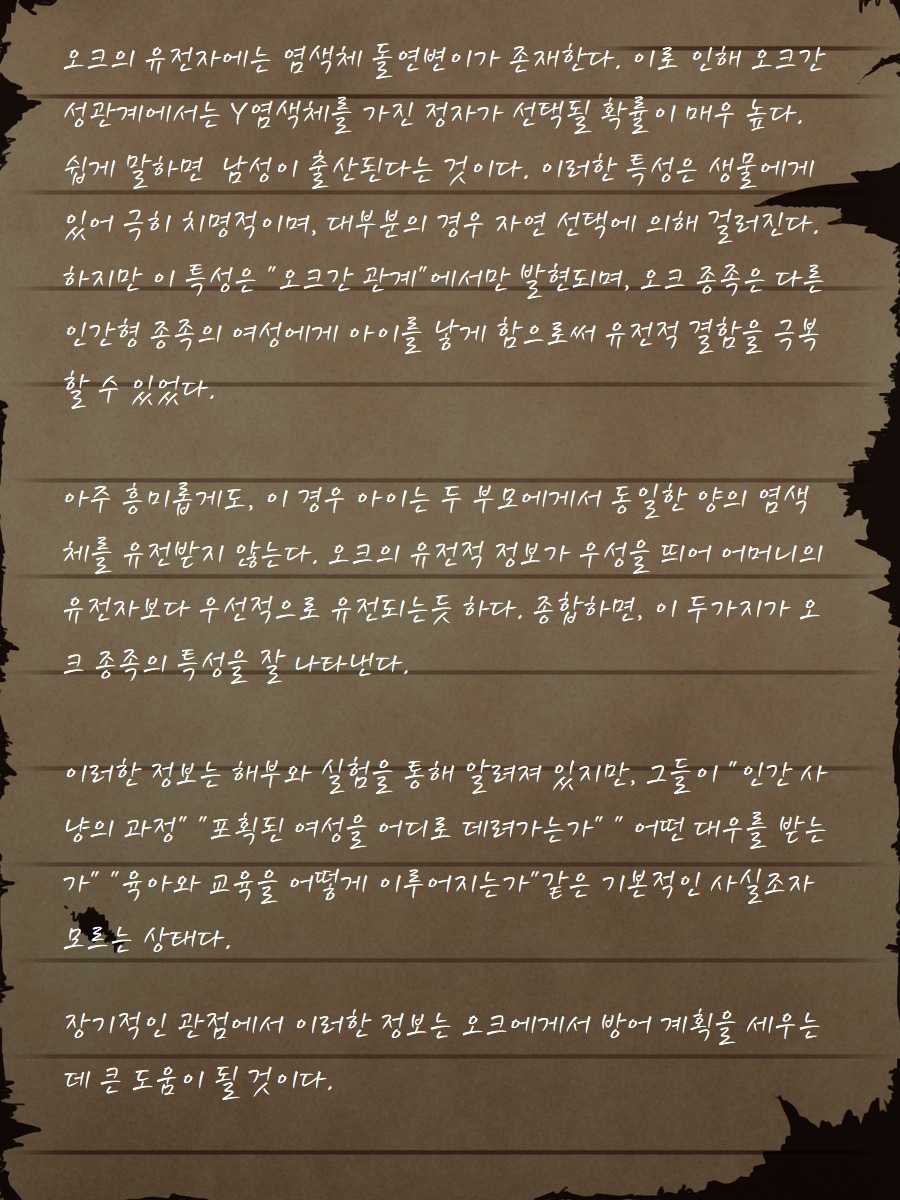 오크의 유전자에는 염색체 돌연변이가 존재한다. 이로 인해 오크간
성관계에서는 Y염색체를 가진 정자가 선택될 확률이 매우 높다.
쉽게 말하면 남성이 출산된다는 것이다. 이러한 특성은 생물에게
있어 극히 치명적이며, 대부분의 경우 자연 선택에 의해 걸러진다.
하지만 이 특성은 "오크간 관계"에서만 발현되며, 오크 종족은 다른
인간형 종족의 여성에게 아이를 낳게 함으로써 유전적 결함을 극복
할 수 있었다.
아주 흥미롭게도, 이 경우 아이는 두 부모에게서 동일한 양의 염색
체를 유전받지 않는다. 오크의 유전적 정보가 우성을 띄어 어머니의
유전자보다 우선적으로 유전되는듯 하다. 종합하면, 이 두가지가 오
크 종족의 특성을 잘 나타낸다.
이러한 정보는 해부와 실험을 통해 알려져 있지만, 그들이 "인간 사
냥의 과정" "포획된 여성을 어디로 데려가는가" " 어떤 대우를 받는
가" "육아와 교육을 어떻게 이루어지는가"같은 기본적인 사실조차
모르는 상태다.
장기적인 관점에서 이러한 정보는 오크에게서 방어 계획을 세우는
데 큰 도움이 될 것이다.